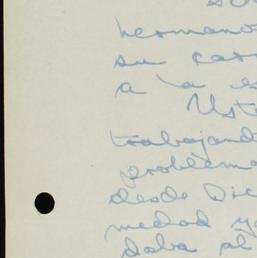 hermano
su
a la es
Uste
trabajand
problema
desde Dic
medad y
daba al